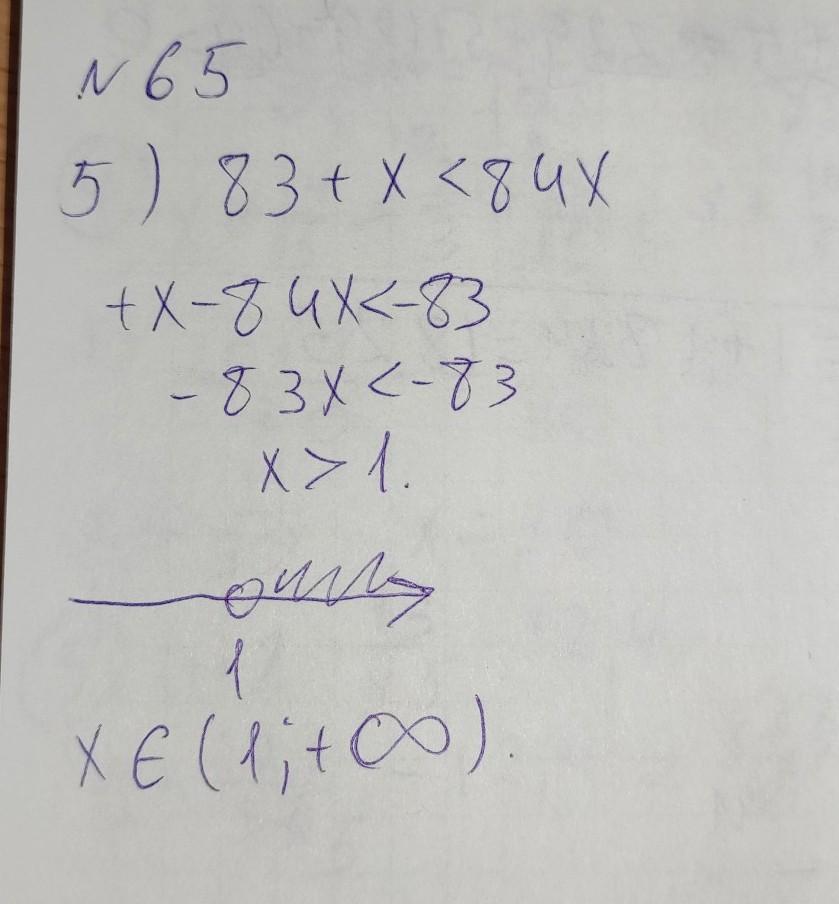 N 65
5) 83 + x < 84x
+x - 84x < -83
-83x < -83
x > 1.
1
x ∈ (1; +∞).